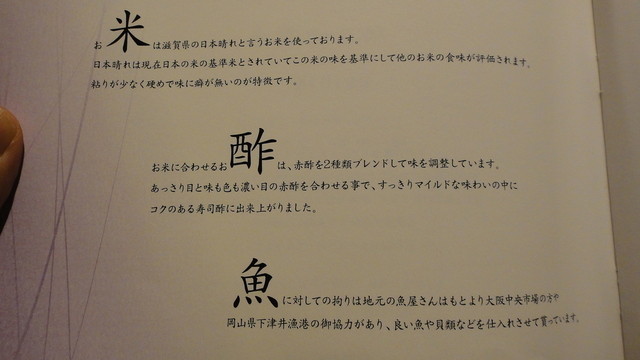 お米は滋賀県の日本晴れと言うお米を使っております。
日本晴れは現在日本の米の基準米とされていてこの米の味を基準にして他のお米の食味が評価されます。
粘りが少なく硬めで味に癖が無いのが特徴です。
お米に合わせるお酢は、赤酢を2種類ブレンドして味を調整しています。
あっさり目と味も色も濃い目の赤酢を合わせる事で、すっきりマイルドな味わいの中に
コクのある寿司酢に出来上がりました。
魚に対しての拘りは地元の魚屋さんはもとより大阪中央市場の方や
岡山県下津井漁港の御協力があり、良い魚や貝類などを仕入れさせて貰っています。